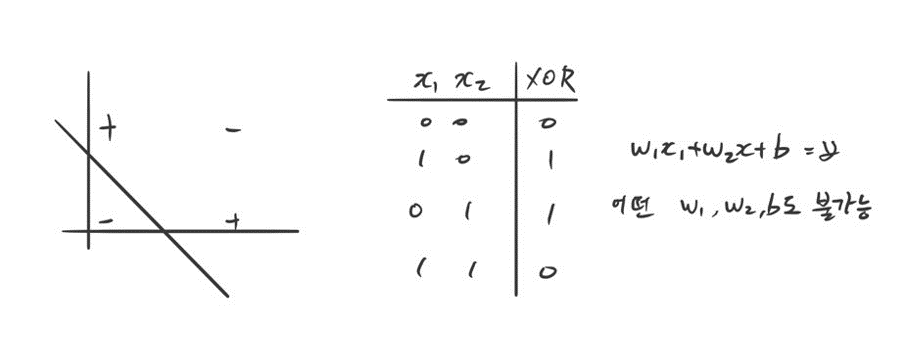 + -
- +
x₁ x₂ XOR
0 0 0
1 0 1
0 1 1
1 1 0
w₁x₁+w₂x+b = y
어떤 w₁,w₂,b도 불가능